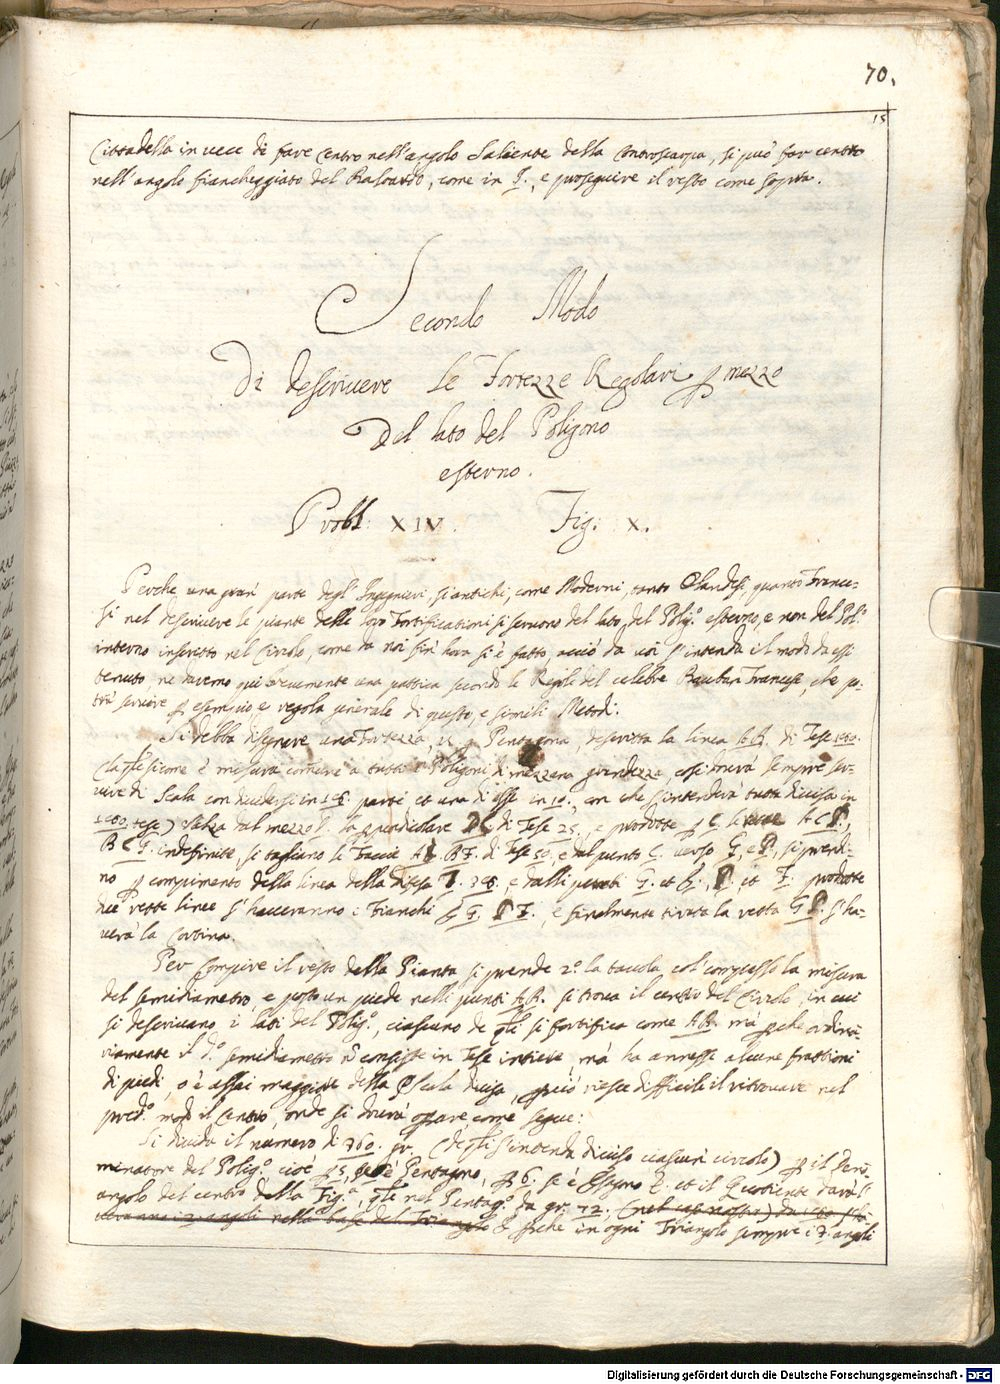 70.
15
Cittadella in vece di fare centro nell'angolo Saliente della Controscarpa, si può far centro
nell'angolo fiancheggiato del Baloardo, come in I., e proseguire il resto come sopra.
Secondo Modo
Di descrivere Le Fortezze Regolari p mezzo
Del lato del Poligono
esterno.
Probl: XIV. Fig: X.
Perche una gran parte degl'Ingegnieri, si antichi, come Moderni, tanto Olandesi, quanto France-
si nel descrivere le piante delle loro Fortificationi si servono del lato del Polig.o esterno, e non del Pol.o
interno inscritto nel Circolo, come da noi sin' hora si è fatto acciò da voi s'intenda il modo da essi
tenuto, ne daremo qui brevemente una pratica secondo le Regole del celebre Bauban Francese, che po-
trà servire p esempio e regola generale di questo, e simili Metodi.
Si debba disegnare una Fortezza, Pentagona, descritta la linea AB. di Tese 180.
(la qle sicome è misura comune a tutti Poligoni di mezzana grandezza, così dovrà sempre ser-
vire di Scala con dividersi in parti et una di esse in 10. con che s'intenderà tutta divisa in
tese) s'alza dal mezzo la ppendicolare di Tese 25. e prodotte p C. le rette
indefinite, si tagliano le Faccie di Tese 50, e dal punto C. verso G, e si prendi-
no p compimento della linea della difesa e dalli punti G. et et F. prodotte
due rette linee s'haveranno i Fianchi e finalmente tirata la retta s'ha-
verà la Cortina.
Per compire il resto della Pianta si prende 2.o la tavola col compasso la misura
del semidiametro e posto un piede nelli punti AB. si trova il centro del Circolo, in cui
si descrivano i lati del Polig.o, ciascuno de qli si fortifica come AB. mà pche ordina-
riamente il d.o semidiametro nō consiste in Tese intiere, mà ha annesse alcune frattioni
di piedi, o è assai maggiore della Scala divisa, pciò riesce difficile il ritrovare nel
pred.o modo il Centro, onde si dovrà oprare come segue:
Si divida il numero di 360. gr. (de qli s'intenda diviso ciascun circolo) p il deno-
minatore del Polig.o cioè p 5, se è Pentagono, p 6. se è Esagono et il Quotiente darà l'
angolo del centro della Fig.a, qle nel Pentag.o da gr. 72. (nel caso nostro)
angoli nella base del Triangolo E pche in ogni Triangolo sempre i 3. angoli
Digitalisierung gefördert durch die Deutsche Forschungsgemeinschaft - DFG